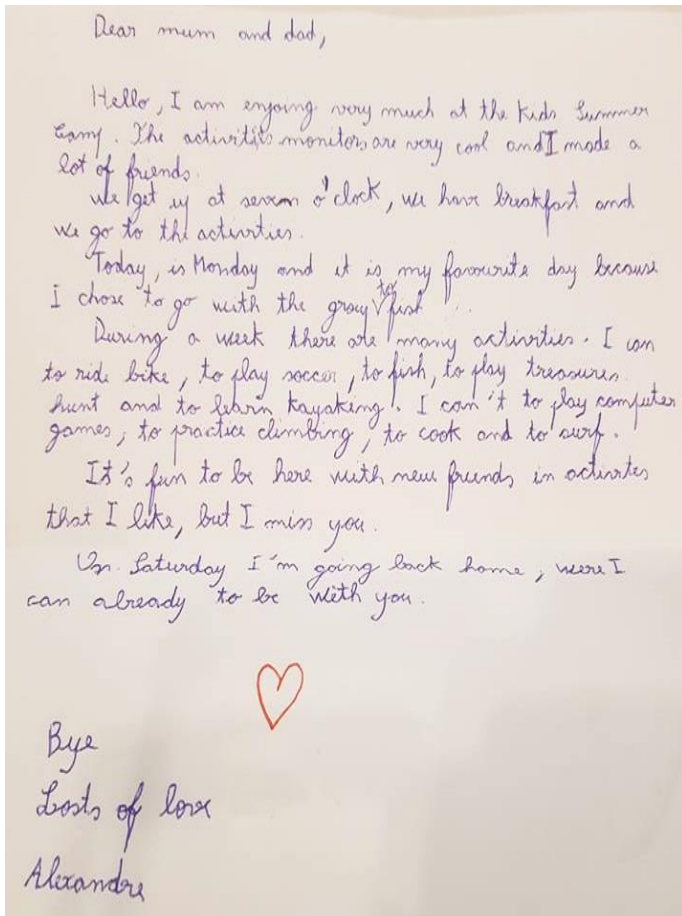 Dear mum and dad,
Hello, I am enjoing very much at the Kids Summer
Camp. The activitits monitors are very cool and I made a
lot of friends.
We get up at seven o'clock, we have breakfast and
we go to the activities.
Today, is Monday and it is my favourite day because
I chose to go with the group to fish
During a week there are many activities. I can
to ride bike, to play soccer, to fish, to play treasures
hunt and to learn Kayaking. I can't to play computer
games, to practice climbing, to cook and to surf.
It's fun to be here with new friends in activites
that I like, but I miss you.
On Saturday I'm going back home, were I
can already to be with you.
Bye
Losts of love
Alexandre